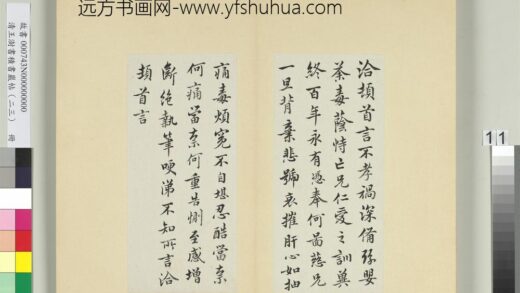 远方书画网-www.yfshuhua.com
洽頓首言不孝禍深備豫嬰
荼毒蔭恃亡兄仁愛之訓冀
終百年永有憑奉何啚慈兄
一旦背棄悲號哀摧肝心如抽
痛毒煩寃不自堪忍酷當柰
何痛當柰何重告惻至感增
斷絕執筆哽涕不知所言洽
頓首言
故書 000743N000000000
清王澍書積書巖帖(二三) 冊
11